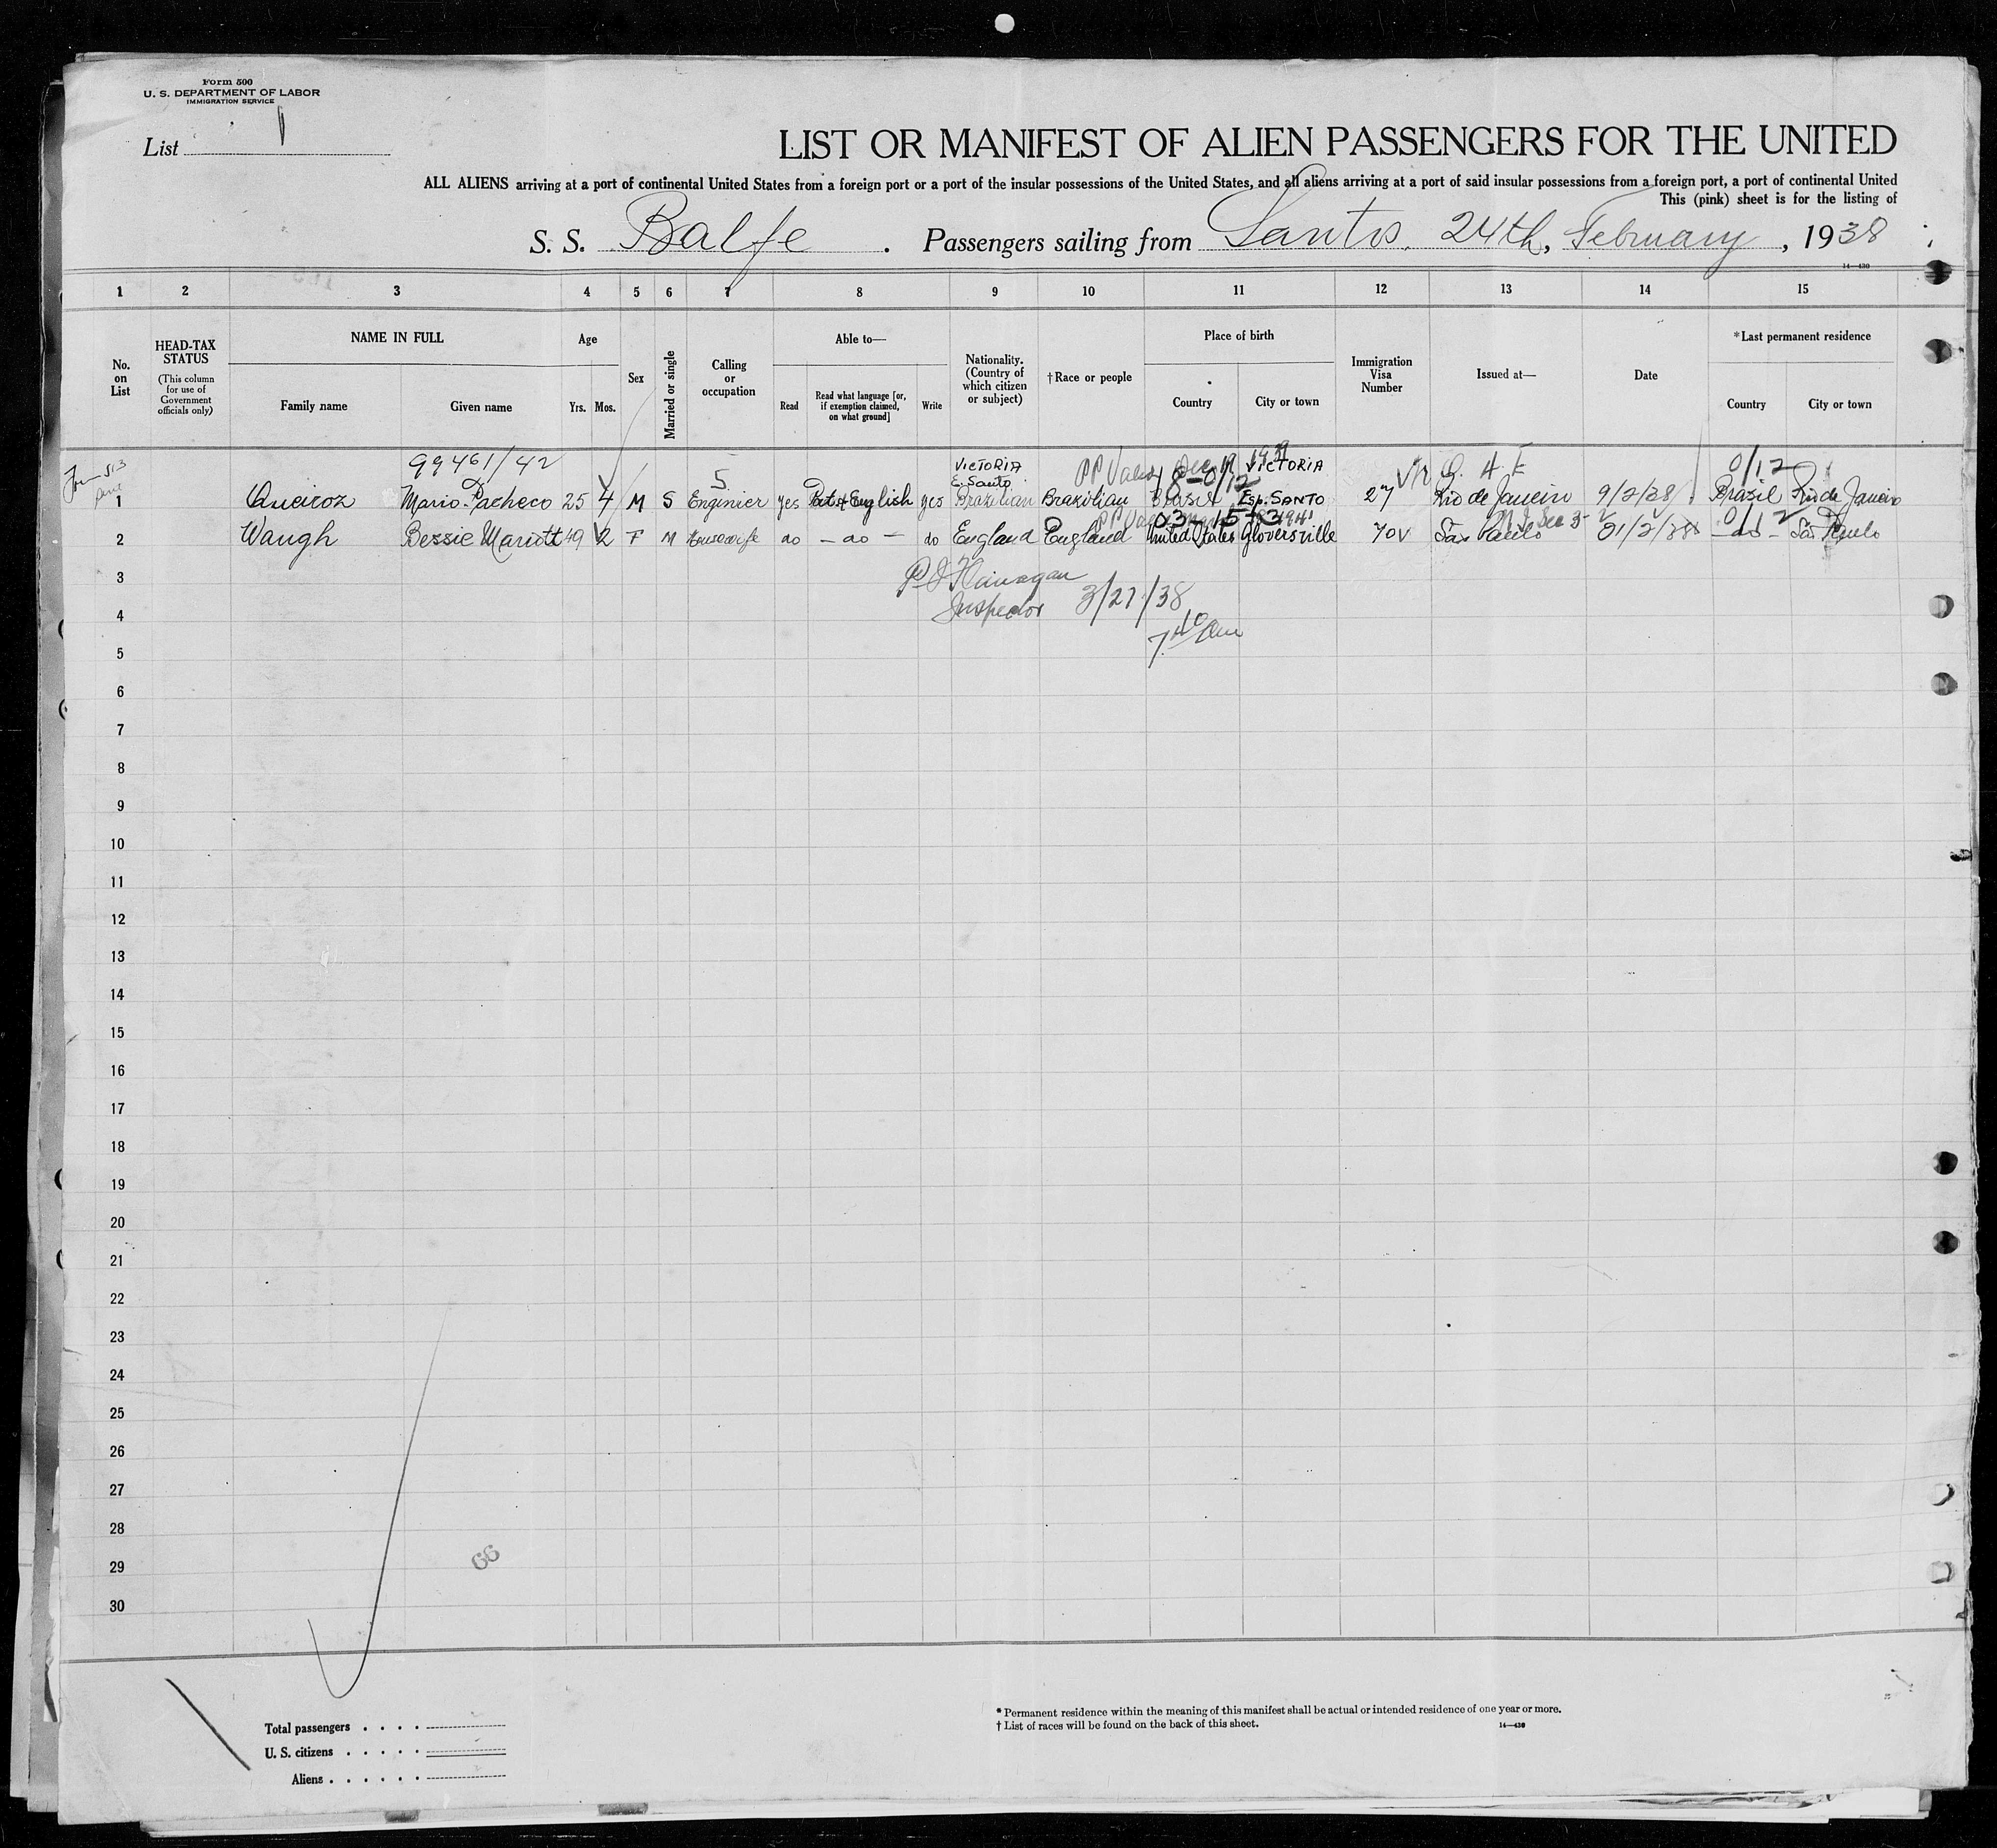 Form 500
U. S. DEPARTMENT OF LABOR
IMMIGRATION SERVICE
List 1
LIST OR MANIFEST OF ALIEN PASSENGERS FOR THE UNITED
ALL ALIENS arriving at a port of continental United States from a foreign port or a port of the insular possessions of the United States, and all aliens arriving at a port of said insular possessions from a foreign port, a port of continental United
This (pink) sheet is for the listing of
S. S. Balfe . Passengers sailing from Santos. 24th, February, 1938
14—430
1 2 3 4 5 6 7 8 9 10 11 12 13 14 15
No. on List
HEAD-TAX STATUS
(This column for use of Government officials only)
NAME IN FULL
Family name Given name
Age
Yrs. Mos.
Sex
Married or single
Calling or occupation
Able to—
Read
Read what language [or, if exemption claimed, on what ground]
Write
Nationality. (Country of which citizen or subject)
†Race or people
Place of birth
Country City or town
Immigration Visa Number
Issued at—
Date
*Last permanent residence
Country City or town
99461/42 5 VICTORIA E. Santo PP Valid VICTORIA 0/12
1 Queiroz Mario Pacheco 25 4 M S Enginier yes Port. & English yes Brazilian Brazilian Brasil Esp. SANTO 27 Rio de Janeiro 9/2/38 Brazil Rio de Janeiro
2 Waugh Bessie Mariott 49 2 F M Housewife do - do - do England England United States Gloversville 70V São Paulo 21/2/38 - do - São Paulo
3
P J Flanagan
4
Inspector 3/27/38
7 40 Am
5
6
7
8
9
10
11
12
13
14
15
16
17
18
19
20
21
22
23
24
25
26
27
28
29
66
30
Total passengers . . . .
U. S. citizens . . . . .
Aliens . . . . . .
* Permanent residence within the meaning of this manifest shall be actual or intended residence of one year or more.
† List of races will be found on the back of this sheet.
14—430